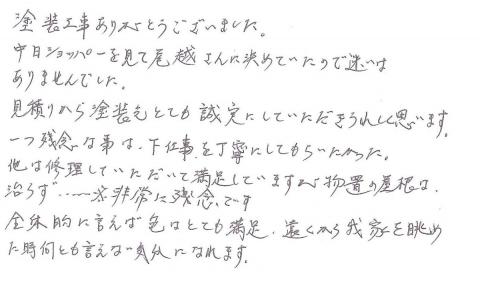 塗装工事ありがとうございました。
中日ショッパーを見て尾越さんに決めていたので迷いは
ありませんでした。
見積りから塗装もとても誠実にしていただきうれしく思います。
一つ残念な事は、下仕事を丁寧にしてもらいたかった。
他は修理していただいて満足していますが物置の屋根は、
治らず……※非常に残念です
全体的に言えば色はとても満足、遠くから我家を眺め
た時何とも言えない気分になれます。